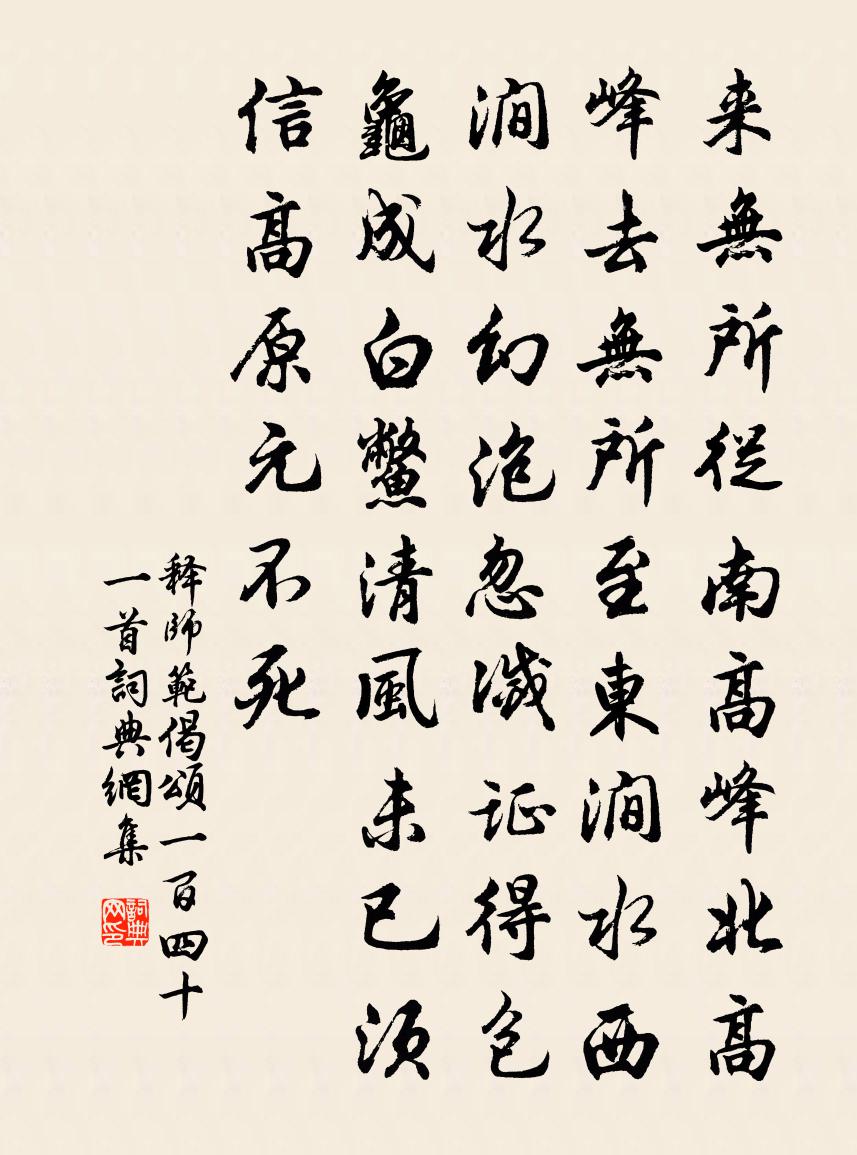 来無所從南高峰北高
峰去無所至東澗水西
澗水幻泡忽滅证得乌
龜成白鱉清風未已須
信高原元不死
释師範偈頌一百四十
一首詞典網集
詞典
网印